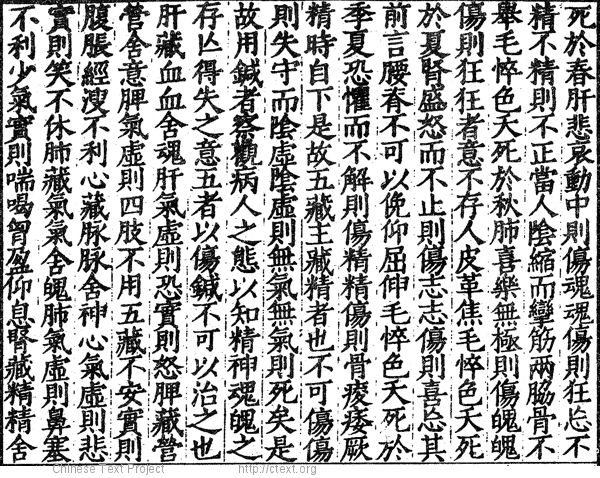 死於春肝悲哀動中則傷魂魂傷則狂忘不
精不精則不正當人陰縮而攣筋兩脇骨不
舉毛悴色夭死於秋肺喜樂無極則傷魄魄
傷則狂狂者意不存人皮革焦毛悴色夭死
於夏腎盛怒而不止則傷志志傷則喜忘其
前言腰脊不可以俛仰屈伸毛悴色夭死於
季夏恐懼而不解則傷精精傷則骨痠痿厥
精時自下是故五藏主藏精者也不可傷傷
則失守而陰虛陰虛則無氣無氣則死矣是
故用鍼者察觀病人之態以知精神魂魄之
存亡得失之意五者以傷鍼不可以治之也
肝藏血血舍魂肝氣虛則恐實則怒脾藏營
營舍意脾氣虛則四肢不用五藏不安實則
腹脹經溲不利心藏脉脉舍神心氣虛則悲
實則笑不休肺藏氣氣舍魄肺氣虛則鼻塞
不利少氣實則喘喝胷盈仰息腎藏精精舍
Chinese Text Project http://ctext.org